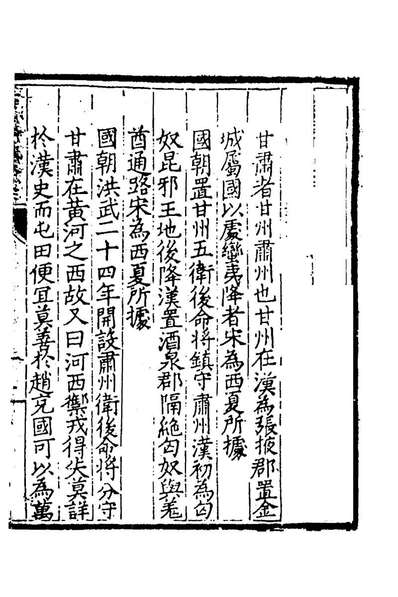 甘肅者甘州肅州也甘州在漢為張掖郡置金
城屬國以處蠻夷降者宋為西夏所據
國朝置甘州五衛後命將鎮守肅州漢初為匈
奴昆邪王地後降漢置酒泉郡隔絶匈奴與羌
酋通路宋為西夏所據
國朝洪武二十四年開設肅州衛後命將分守
甘肅在黃河之西故又曰河西禦戎得失莫詳
於漢史而屯田便宜莫善於趙充國可以為萬